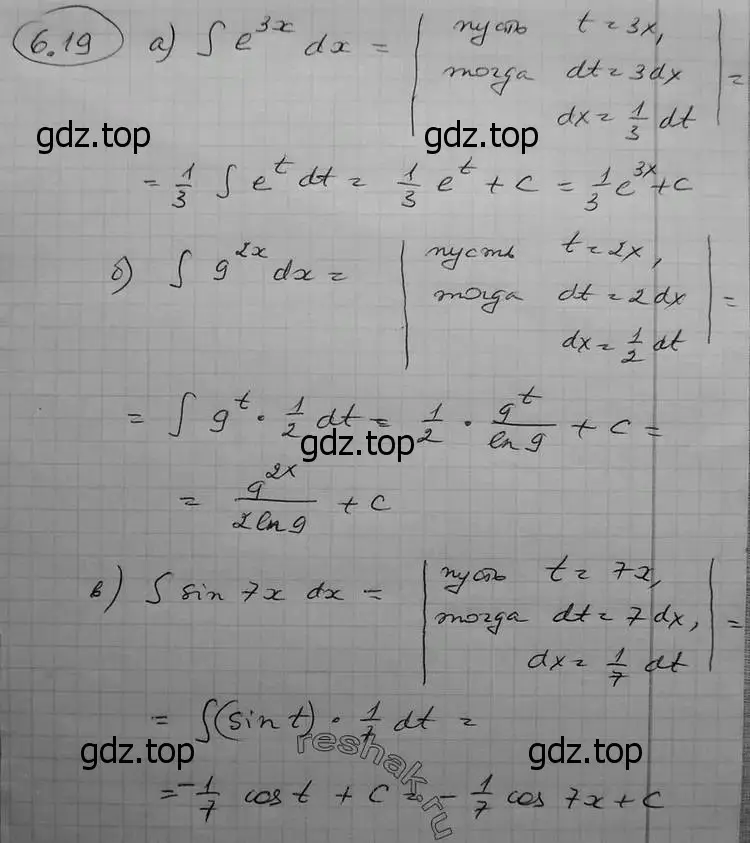 6.19 а) ∫ e^{3x} dx = | пусть t = 3x, |
тогда dt = 3dx =
dx = 1/3 dt
gdz.top gdz.top
= 1/3 ∫ e^t dt = 1/3 e^t + C = 1/3 e^{3x} + C
б) ∫ 9^{2x} dx = | пусть t = 2x, |
тогда dt = 2dx =
dx = 1/2 dt
= ∫ 9^t · 1/2 dt = 1/2 · 9^t/ln 9 + C =
gdz.top
= 9^{2x}/2 ln 9 + C
в) ∫ sin 7x dx = | пусть t = 7x, |
тогда dt = 7dx, =
dx = 1/7 dt
= ∫(sin t) · 1/7 dt =
gdz.top reshak.ru gdz.top
= -1/7 cos t + C = -1/7 cos 7x + C